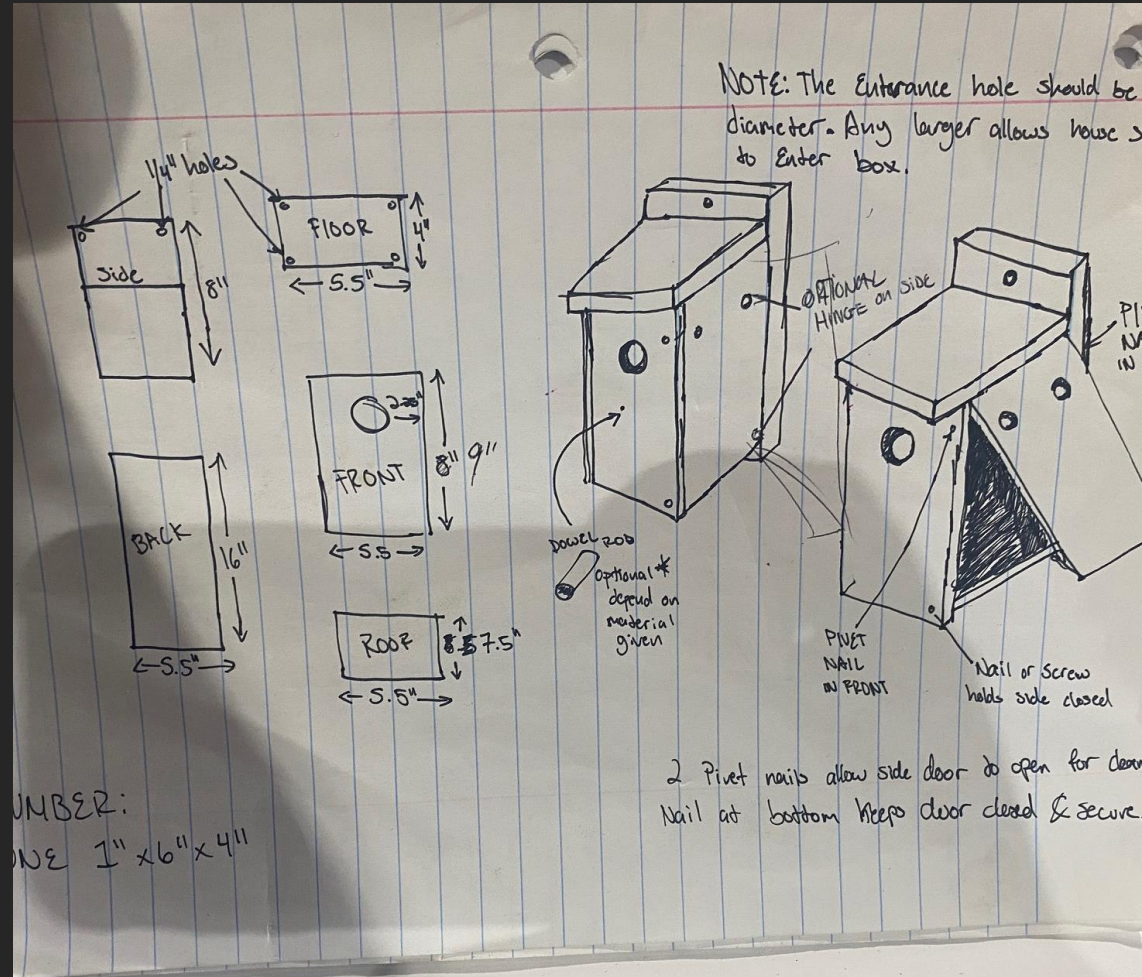 NOTE: The Enterance hole should be
diameter. Any larger allows house s
to Enter box.
1/4" holes
Side
8"
FLOOR
4"
5.5"
OPTIONAL
HINGE on SIDE
PI
NA
IN
FRONT
8" 9"
5.5
BACK
16"
5.5"
ROOF
7.5"
5.5"
DOWEL ROD
Optional*
depend on
material
given
PIVET
NAIL
IN FRONT
Nail or Screw
holds side closed
2 Pivet nails allow side door to open for clean
Nail at bottom keeps door closed & secure.
UMBER:
ONE 1" x6" x 4"